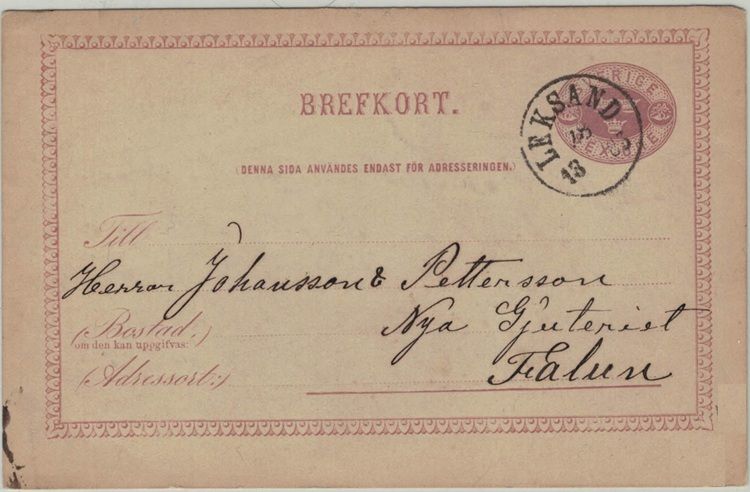 SVERIGE
BREFKORT.
LEKSAND
13
(DENNA SIDA ANVÄNDES ENDAST FÖR ADRESSERINGEN.)
Till
Herrar Johansson & Pettersson
(Bostad.)
om den kan uppgifvas:
Nya Gjuteriet
(Adressort:)
Falun